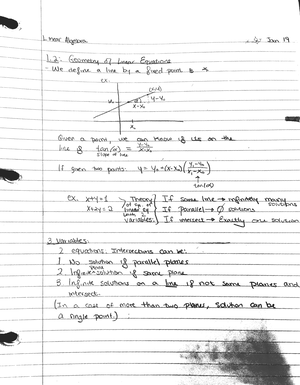 Linear Algebra
Jan 19
1.2: Geometry of Linear Equations
- We define a line by a fixed point &
ex.
(x,y)
y-y₀
y₀
x-x₀
x₀
Given a point, we can know if its on the
line if tan(α) = y-y₀/x-x₀
slope of line
If given two points: y = y₀ + (x-x₀)(y₁-y₀/x₁-x₀)
tan(α)
ex. x+y=1 Theory If same line → infinitely many solutions
x+2y=2 If parallel → ∅ solutions
variables If intersect → Exactly one solution
3 Variables:
2 equations. Intersections can be:
1 No solution if parallel planes
2 Infinite solution if same plane
3 Infinite solutions on a line if not same planes and
intersect.
(In a case of more than two planes, solution can be
a single point.)